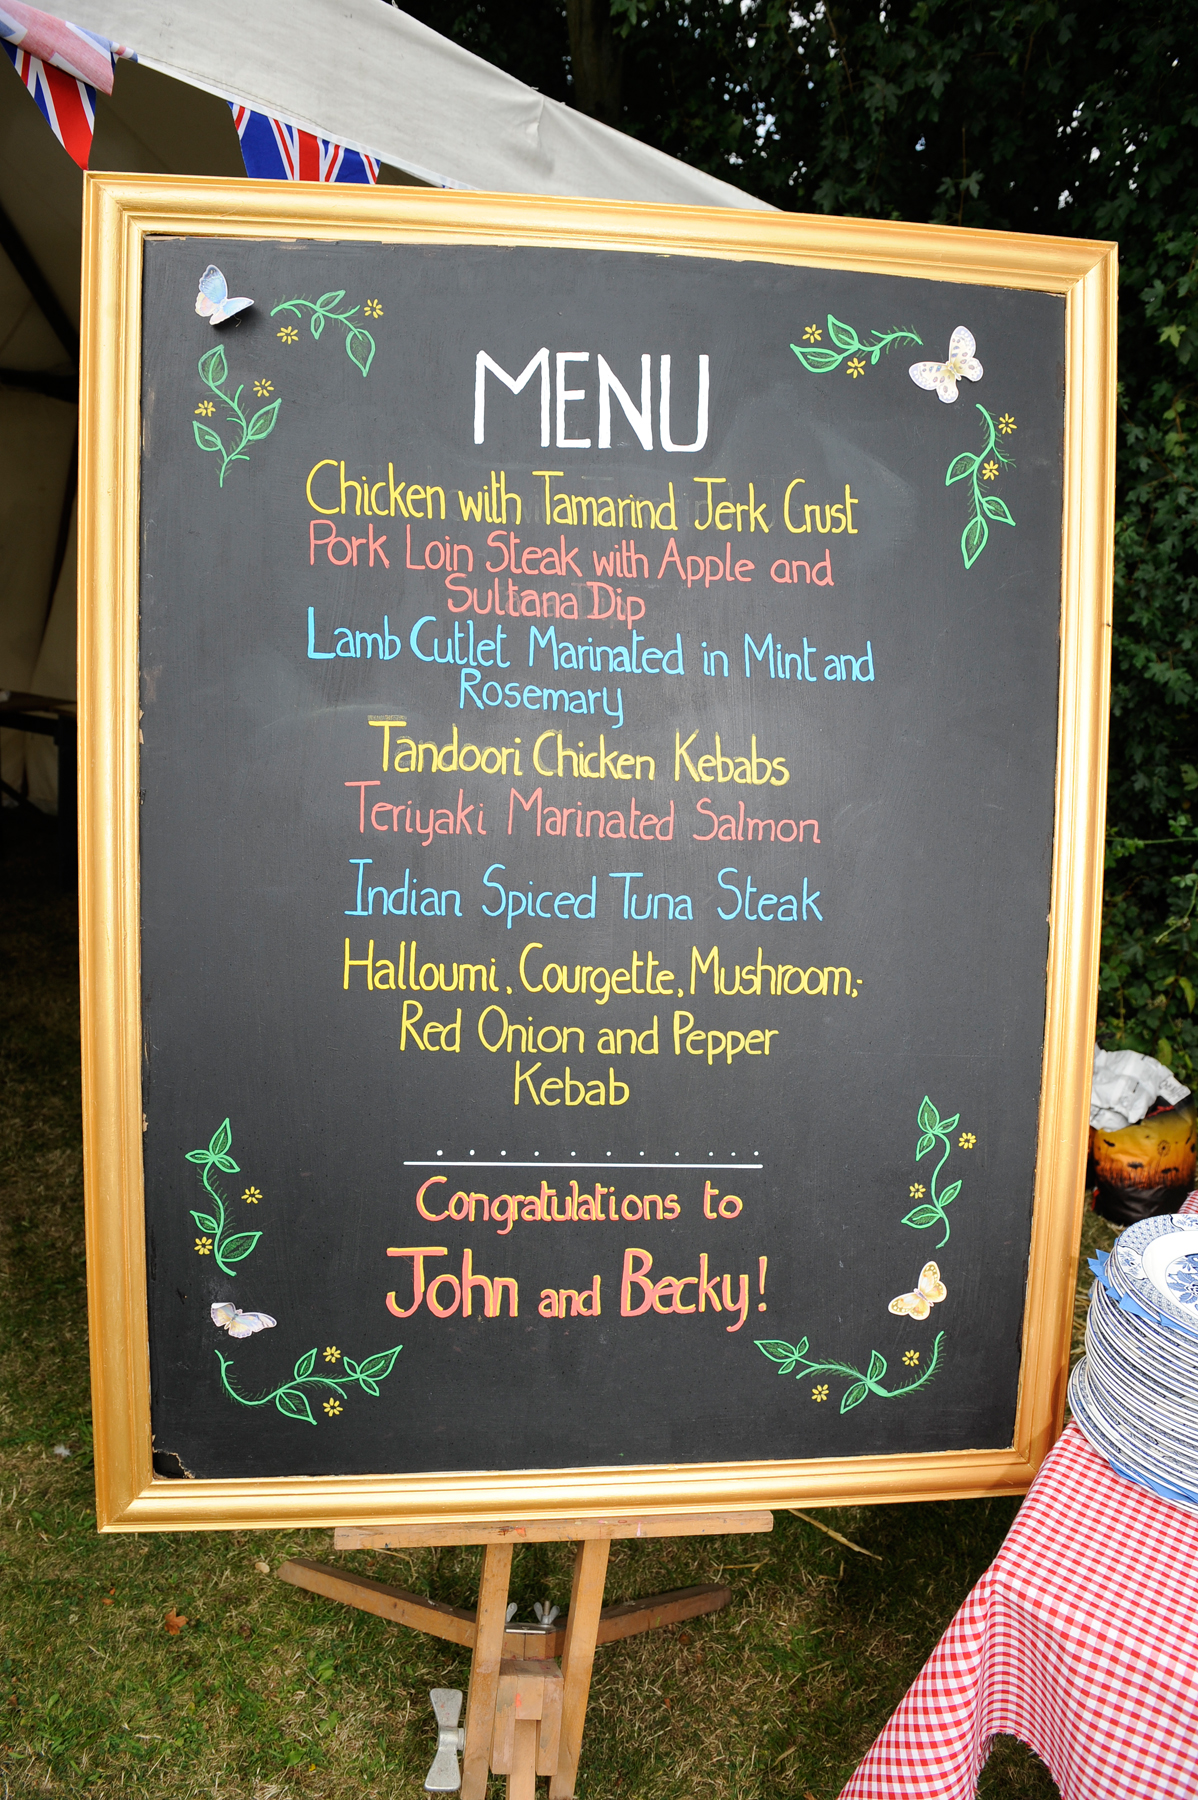 MENU
Chicken with Tamarind Jerk Crust
Pork Loin Steak with Apple and
Sultana Dip
Lamb Cutlet Marinated in Mint and
Rosemary
Tandoori Chicken Kebabs
Teriyaki Marinated Salmon
Indian Spiced Tuna Steak
Halloumi, Courgette, Mushroom,
Red Onion and Pepper
Kebab
Congratulations to
John and Becky!